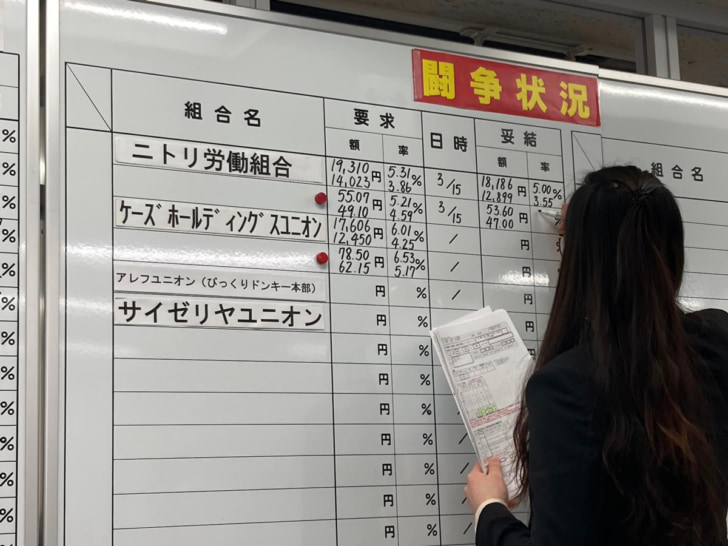 闘争状況
組合名 要求 日時 妥結 組合名
額 率 額 率
ニトリ労働組合 19,310 14,023 円 5.31 3.86 % 3/15 18,186 12,899 円 5.00 3.55 %
55.07 49.10 円 5.21 4.59 % 3/15 53.60 47.00 円 %
ケーズホールディングスユニオン 17,606 12,450 円 6.01 4.25 % / 円
78.50 62.15 円 6.53 5.17 % / 円
アレフユニオン(びっくりドンキー本部) 円 % / 円
サイゼリヤユニオン 円 % / 円
円 % 円
円 %
円 %
円 % /
円 % /
円 % /
円 %